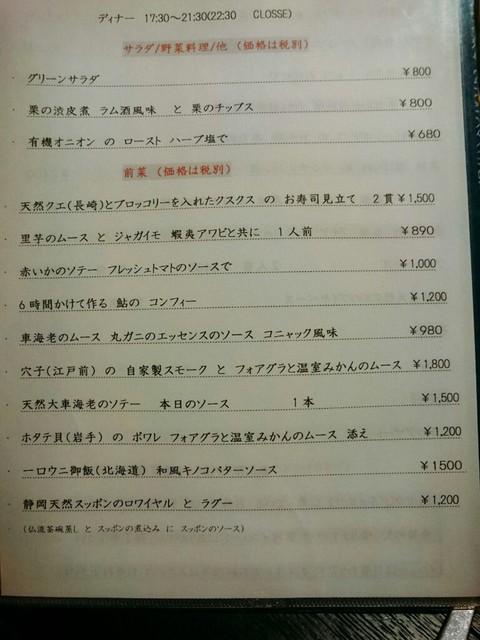 ディナー 17:30～21:30(22:30 CLOSSE)
サラダ/野菜料理/他 (価格は税別)
グリーンサラダ ￥800
栗の渋皮煮 ラム酒風味 と 栗のチップス ￥800
有機オニオン の ロースト ハーブ塩で ￥680
前菜 (価格は税別)
天然クエ(長崎)とブロッコリーを入れたクスクス の お寿司見立て 2貫￥1,500
里芋のムース と ジャガイモ 蝦夷アワビと共に 1人前 ￥890
赤いかのソテー フレッシュトマトのソースで ￥1,000
6時間かけて作る 鮎の コンフィー ￥1,200
車海老のムース 丸ガニのエッセンスのソース コニャック風味 ￥980
穴子(江戸前) の 自家製スモーク と フォアグラと温室みかんのムース ￥1,800
天然大車海老のソテー 本日のソース 1本 ￥1,500
ホタテ貝(岩手) の ポワレ フォアグラと温室みかんのムース 添え ￥1,200
一口ウニ御飯(北海道) 和風キノコバターソース ￥1500
静岡天然スッポンのロワイヤル と ラグー ￥1,200
(仏流茶碗蒸し と スッポンの煮込み に スッポンのソース)